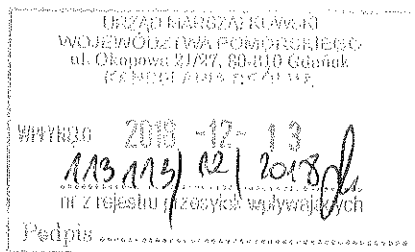 URZĄD MARSZAŁKOWSKI
WOJEWÓDZTWA POMORSKIEGO
ul. Okopowa 21/27, 80-810 Gdańsk
WPŁYNĘŁO 2018 -12- 13
113 113/ 12/ 2018
nr z rejestru przesyłek wpływających
Podpis